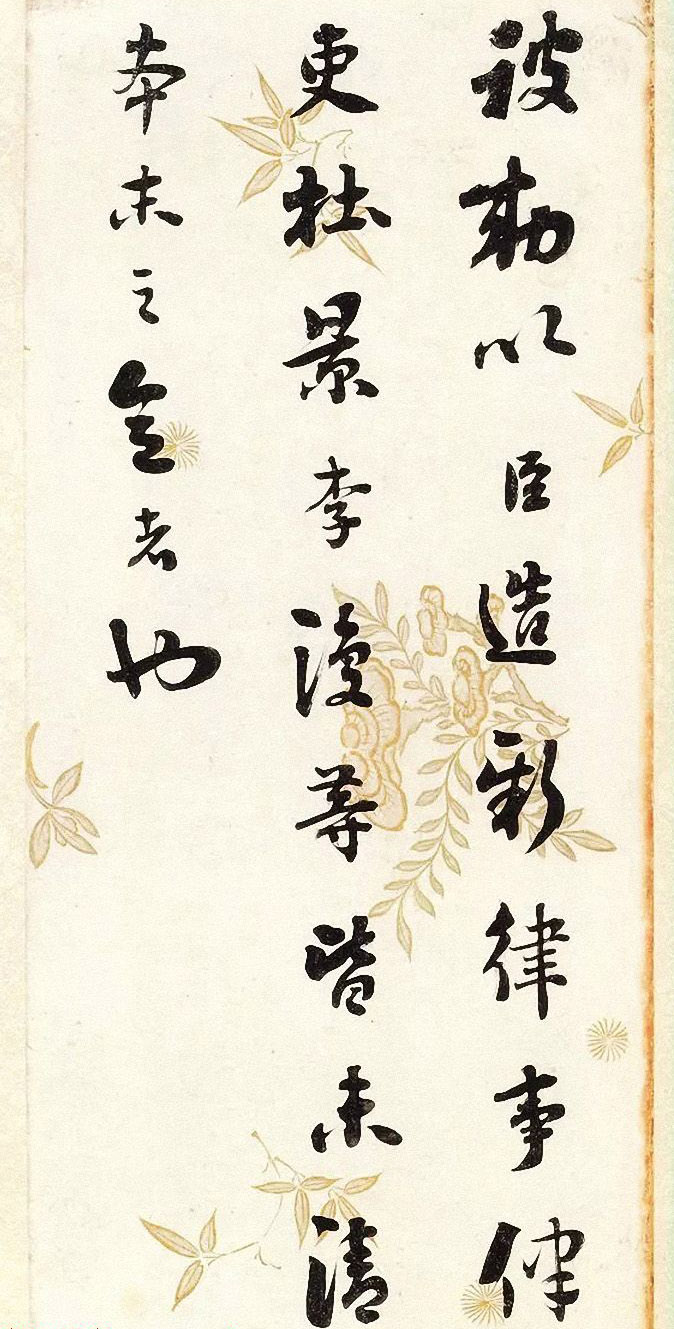 被勅以臣造新律事律
吏杜景李復等皆未清
本末之意者也